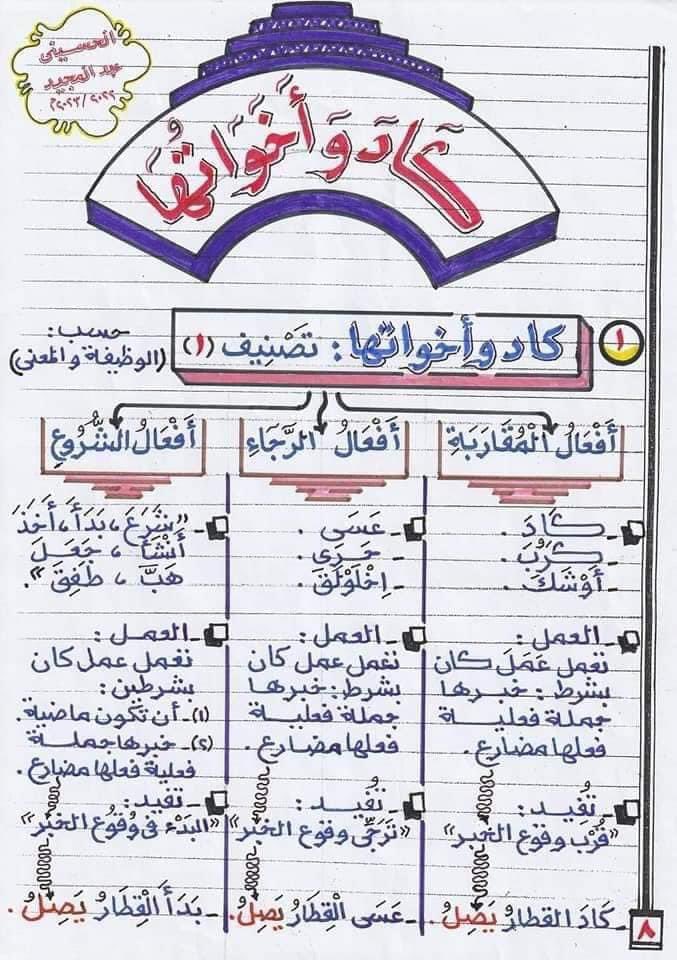 الحسيني
عبد المجيد
٢٠٢٣/٢٠٢٢م
كاد وأخواتها
١
كاد وأخواتها: تصنيف (١)
حسب:
(الوظيفة والمعنى)
أَفْعَالُ الْمُقَارَبَةِ
- كَادَ.
- كَرُبَ.
- أَوْشَكَ.
- العمل:
تعمل عَمَلَ كان
بشرط: خبرها
جملة فعلية
فعلها مضارع.
- تُفِيد:
«قُرْبَ وقوع الخبر»
- كَادَ القطارُ يَصِلُ.
أَفْعَالُ الرَّجَاءِ
- عَسَى.
- حَرَى.
- اِخْلَوْلَقَ.
- العمل:
تعمل عمل كان
بشرط: خبرها
جملة فعلية
فعلها مضارع.
- تُفِيد:
«تَرَجِّي وقوع الخبر»
- عَسَى القِطَارُ يَصِلُ.
أَفْعَالُ الشُّرُوعِ
- «شَرَعَ، بَدَأَ، أَخَذَ
أَنْشَأَ، جَعَلَ
هَبَّ، طَفِقَ».
- العمل:
تعمل عمل كان
بشرطين:
(١)- أن تكون ماضية.
(٢)- خبرها جملة
فعلية فعلها مضارع.
- تفيد:
«البَدْء في وُقُوعِ الخبر»
- بَدَأَ الْقِطَارُ يَصِلُ.
٨